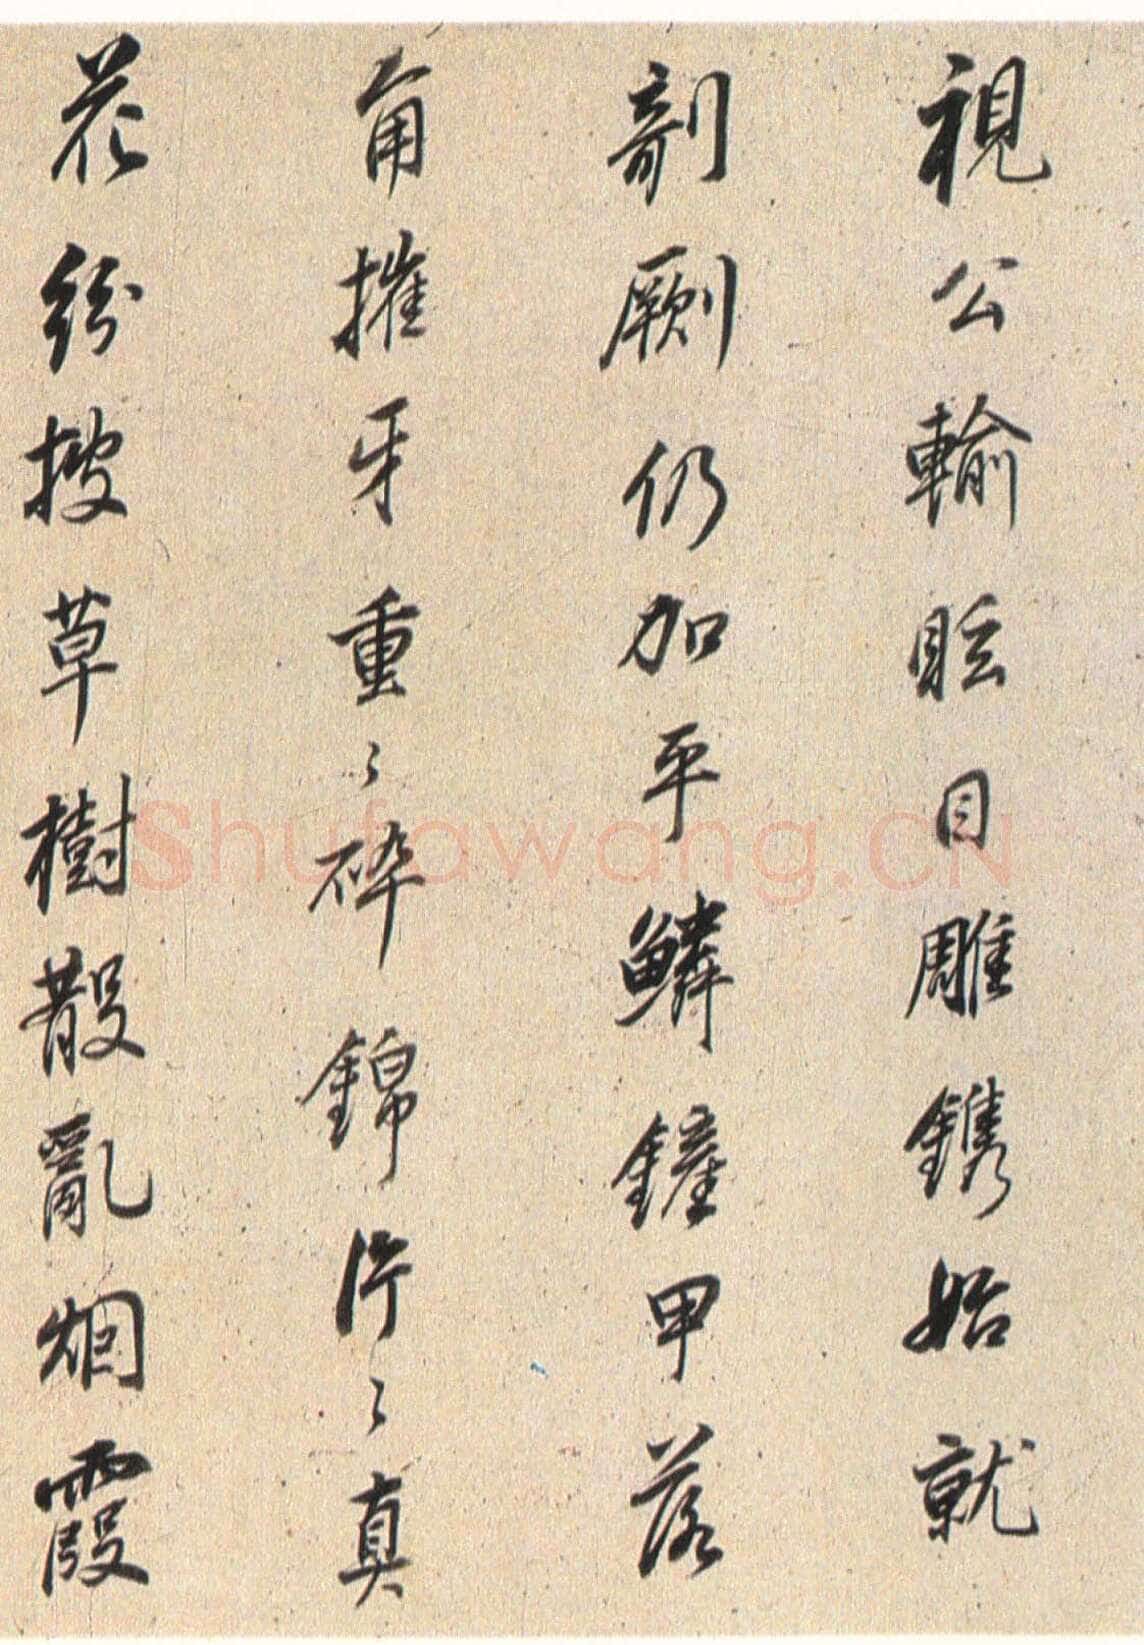 視公輸眩目雕鐫始就
剞劂仍加平鱗鏟甲落
角摧牙重〻碎錦片〻真
花紛披草樹散亂烟霞
Shufawang.CN